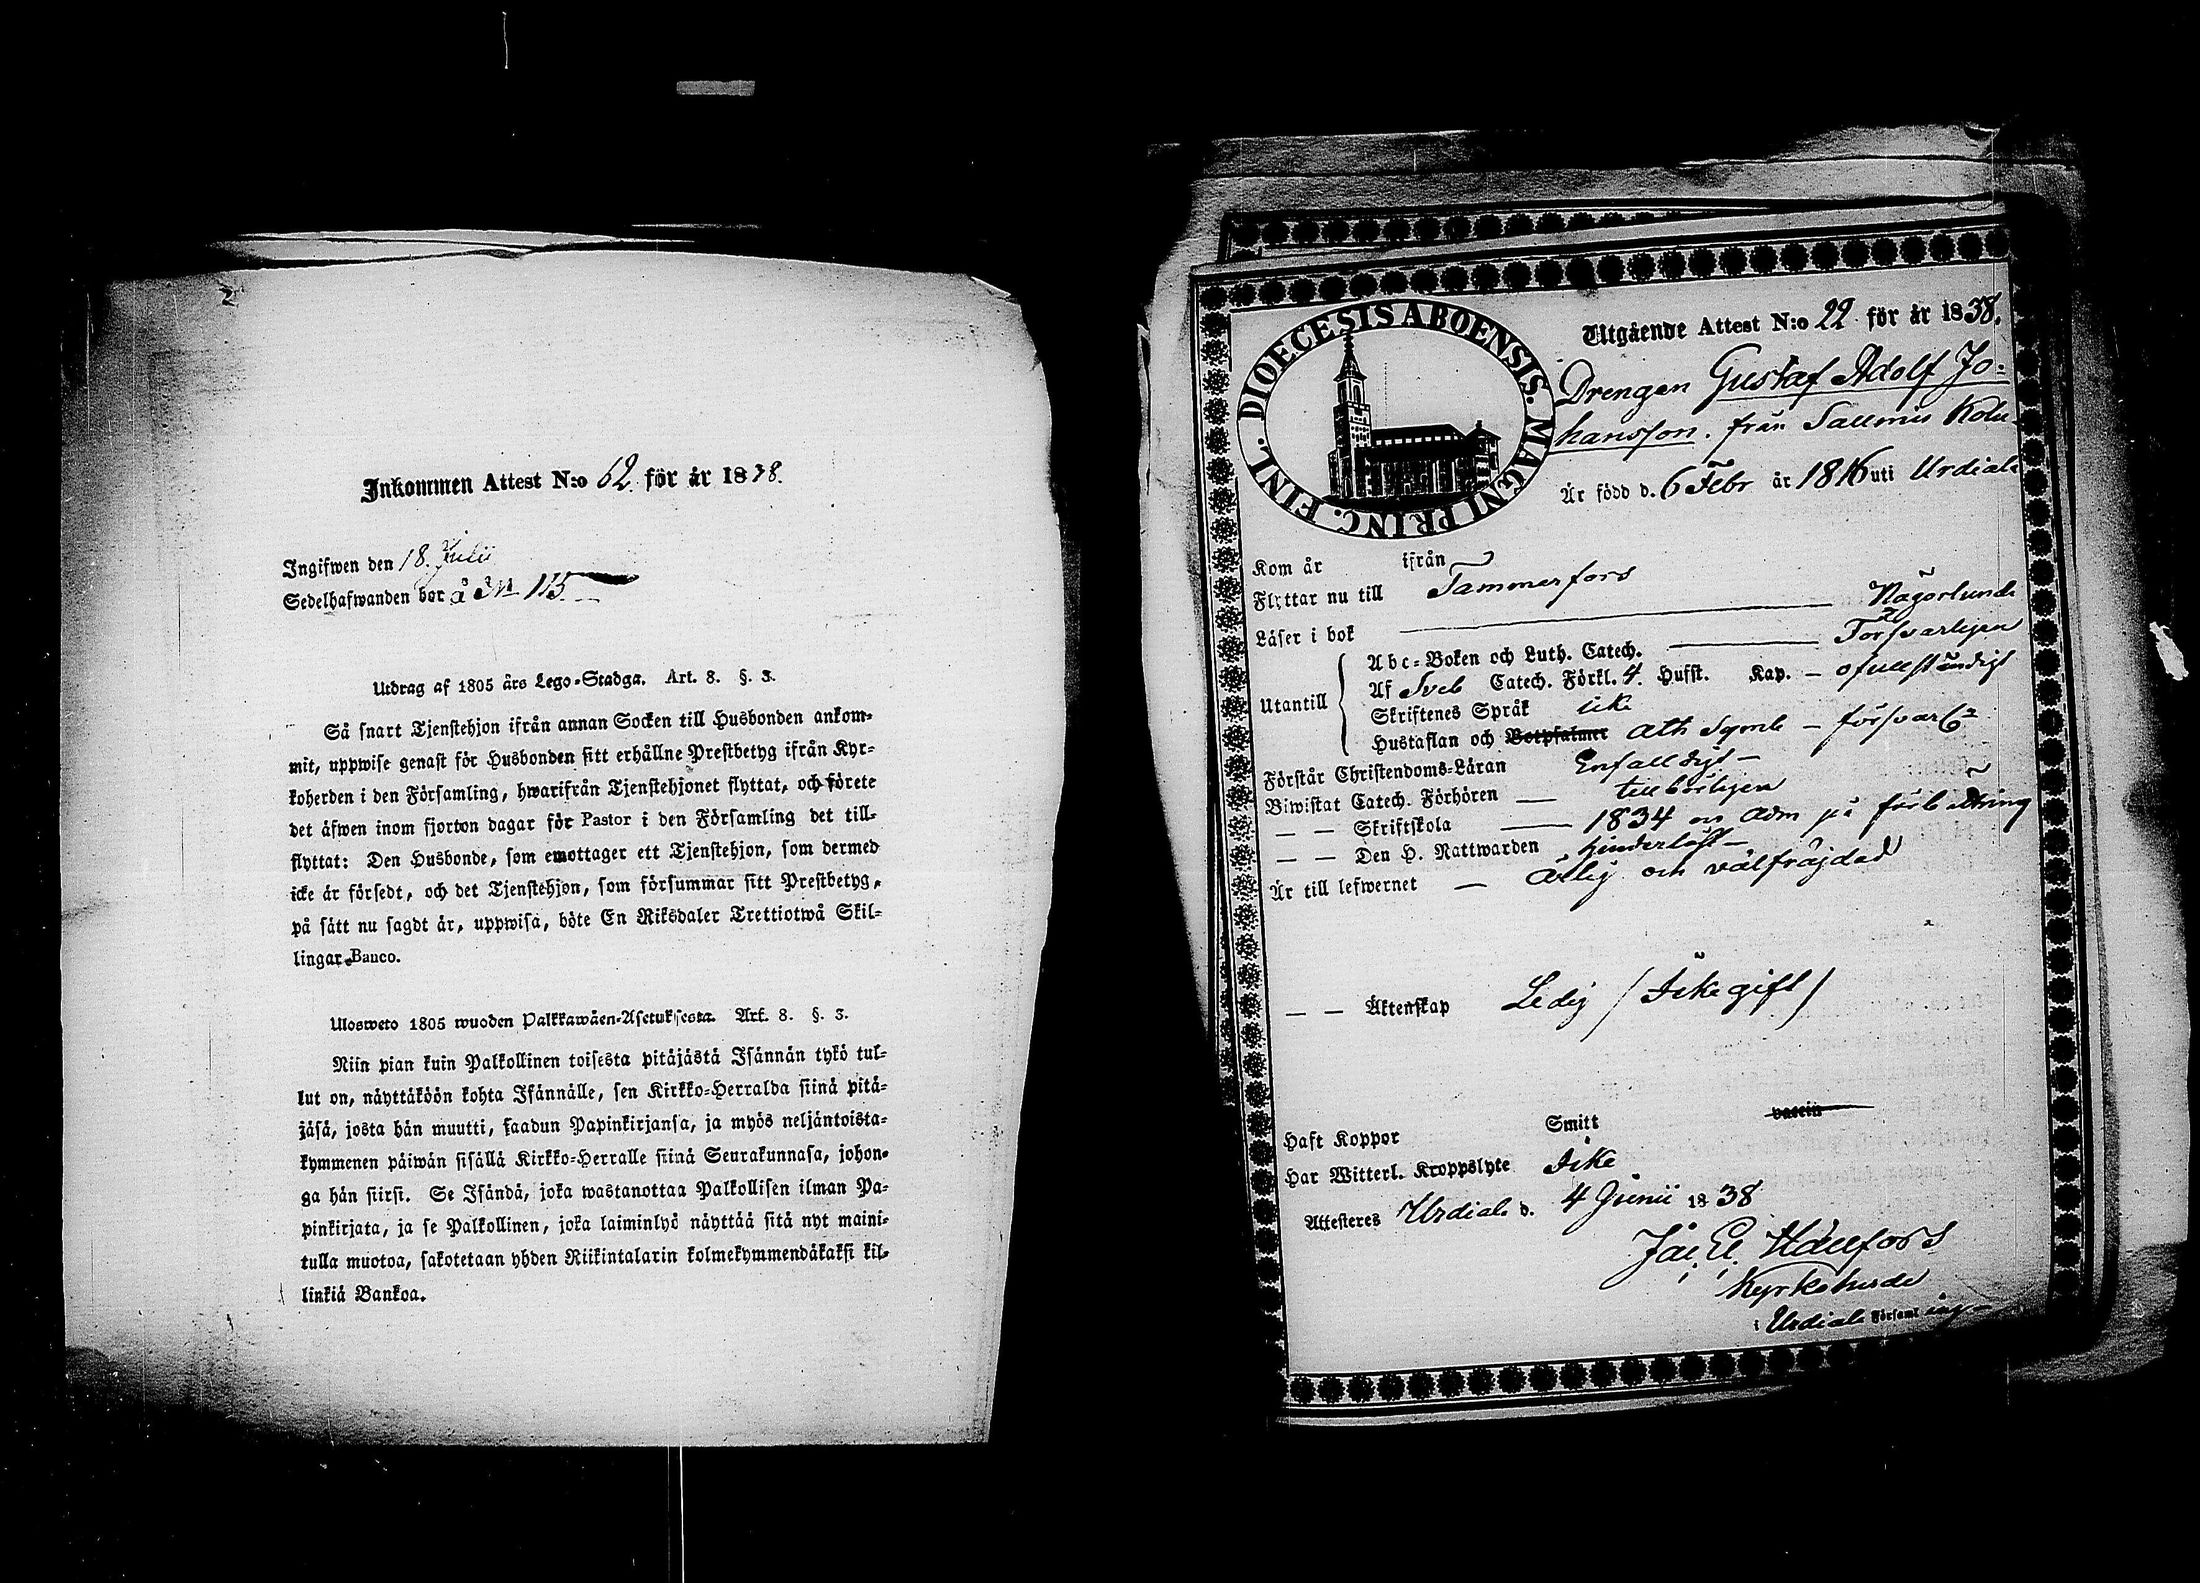 2
Inkommen Attest N:o 62. för år 1838.
Ingifwen den 18. Julii
Sedelhafwanden bor å N 115
Utdrag af 1805 års Lego-Stadga. Art. 8. §. 3.
Så snart Tjenstehjon ifrån annan Socken till Husbonden ankom-
mit, uppwise genast för Husbonden sitt erhållne Prestbetyg ifrån Kyr-
koherden i den Församling, hwarifrån Tjenstehjonet flyttat, och förete
det äfwen inom fjorton dagar för Pastor i den Församling det till-
flyttat: Den Husbonde, som emottager ett Tjenstehjon, som dermed
icke är försedt, och det Tjenstehjon, som försummar sitt Prestbetyg,
på sätt nu sagdt är, uppwisa, böte En Riksdaler Trettiotwå Skil-
lingar Banco.
Ulosweto 1805 wuoden Palkkawäen-Asetuksesta. Art. 8. §. 3.
Niin pian kuin Palkollinen toisesta pitäjästä Isännän tykö tul-
lut on, näyttäköön kohta Isännälle, sen Kirkko-Herralda siinä pitä-
jäsä, josta hän muutti, saadun Papinkirjansa, ja myös neljäntoista-
kymmenen päiwän sisällä Kirkko-Herralle siinä Seurakunnasa, johon-
ga hän siirsi. Se Isändä, joka wastanottaa Palkollisen ilman Pa-
pinkirjata, ja se Palkollinen, joka laiminlyö näyttää sitä nyt maini-
tulla muotoa, sakotetaan yhden Riikintalarin kolmekymmendäkaksi kil-
linkiä Bankoa.
DIOECESIS ABOENSIS. MAGNI PRINC. FINL.
Utgående Attest N:o 22 för år 1838.
Drengen Gustaf Adolf Jo-
hansson. från Saumis Kolu
Är född d. 6 Febr år 1816 uti Urdiala
Kom år ifrån
Flyttar nu till Tammerfors
Läser i bok Någorlunda
Abc-Boken och Luth. Catech. Försvarligen
Utantill
Af Sveb Catech. Förkl. 4. Hufst. Kap. - ofullständigt
Skriftenes Språk icke
Hustaflan och Botpsalmer Ath Symb - försvarl
Förstår Christendoms-Läran Enfalldigt -
Biwistat Catech. Förhören - tillbörligen
- - Skriftskola - 1834 och Adm på förbättring
- - Den H. Nattwarden hinderlöst -
Är till lefwernet - Ärlig och välfräjdad
- - Äktenskap Ledig / Icke gift /
Haft Koppor Smitt vaccin
Har Witterl. Kroppslyte Icke
Attesteres Urdiala d. 4 Junii 1838
Kyrkoherde
i Urdiala Församling -